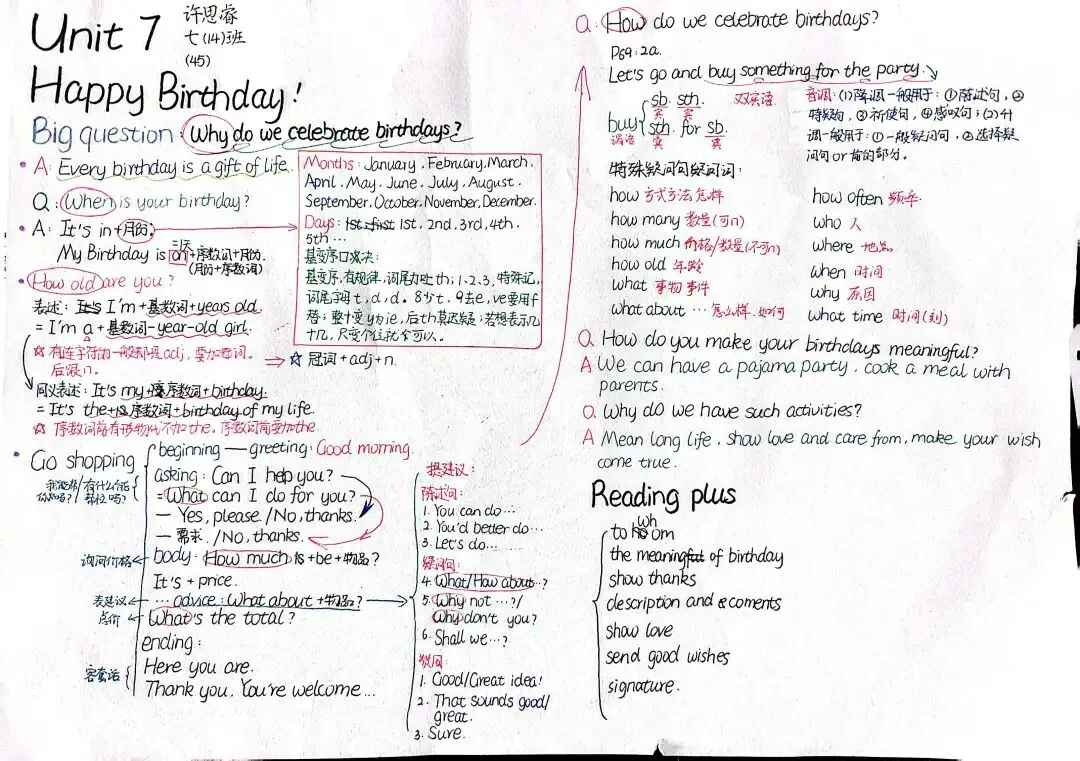 Unit 7
许思睿
七(14)班
(45)
Happy Birthday!
Big question: Why do we celebrate birthdays?
A: Every birthday is a gift of life.
Q: When is your birthday?
A: It's in+月份.
My Birthday is on+序数词+月份.
(月份+序数词)
Months: January, February, March,
April, May, June, July, August,
September, October, November, December.
Days: 1st first 1st, 2nd, 3rd, 4th,
5th …
基变序口诀:
基变序,有规律,词尾加上th; 1、2、3,特殊记,
词尾字母t, d, d。8少t, 9去e, ve要用f
替;整十变y为ie,后th莫迟疑;若想表示几
十几,只变个位就可以。
How old are you?
表述: It's I'm+基数词+years old.
= I'm a+基数词-year-old girl.
☆ 有连字符的一般都是adj,要加冠词。
后跟n.
☆ 冠词+adj+n.
同义表述: It's my+序数词+birthday.
= It's the+序数词+birthday of my life.
☆ 序数词前有形物代不加the,序数词前要加the.
Go shopping
beginning — greeting: Good morning.
asking: Can I help you?
= What can I do for you?
— Yes, please. /No, thanks.
— 需求. /No, thanks.
询问价格
body: How much is+be+物品?
It's + price.
表建议
… advice: What about +物品?
What's the total?
ending:
客套话
Here you are.
Thank you. You're welcome…
提建议:
陈述句:
1. You can do…
2. You'd better do…
3. Let's do…
疑问句:
4. What/How about…?
5. Why not …?/
Why don't you?
6. Shall we…?
1. Good/Great idea!
2. That sounds good/
great.
3. Sure.
Q: How do we celebrate birthdays?
P69: 2a.
Let's go and buy something for the party.
buy
谓语
sb. sth. 双宾语
宾 宾
sth. for sb.
宾 宾
音调: (1)降调一般用于: ①陈述句, ②
特疑句, ③祈使句, ④感叹句; (2)升
调一般用于: ①一般疑问句, ②选择疑
问句or前的部分。
特殊疑问句疑问词:
how 方式方法 怎样
how many 数量(可n)
how much 价格/数量(不可n)
how old 年龄
what 事物 事件
what about … 怎么样, 如何
how often 频率
who 人
where 地点
when 时间
why 原因
what time 时间(刻)
Q How do you make your birthdays meaningful?
A We can have a pajama party, cook a meal with
parents.
Q Why do we have such activities?
A Mean long life, show love and care from, make your wish
come true.
Reading plus
to whom
the meaning of birthday
show thanks
description and coments
show love
send good wishes
signature.